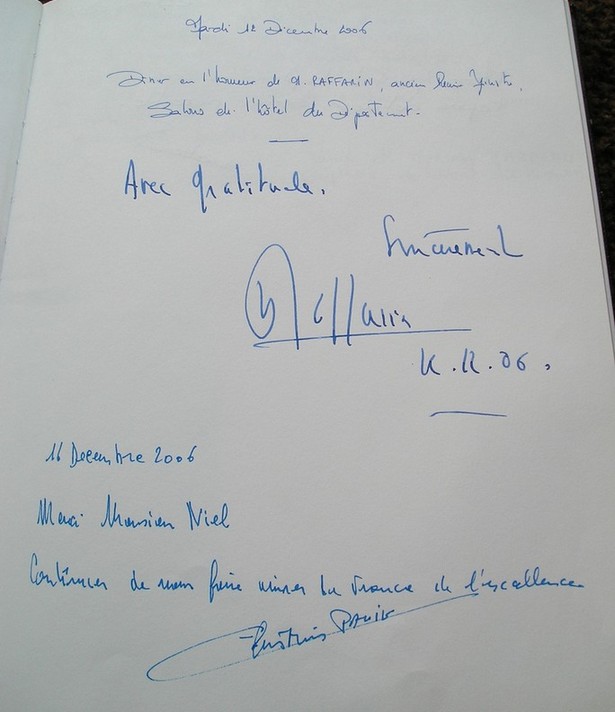 Mardi 12 Décembre 2006
Dîner en l'honneur de M. RAFFARIN, ancien Premier Ministre,
Salons de l'hôtel du Département.
Avec gratitude,
Sincèrement
Raffarin
12.06
16 Decembre 2006
Merci Monsieur Niel
Continuer de nous faire vivre la France de l'excellence